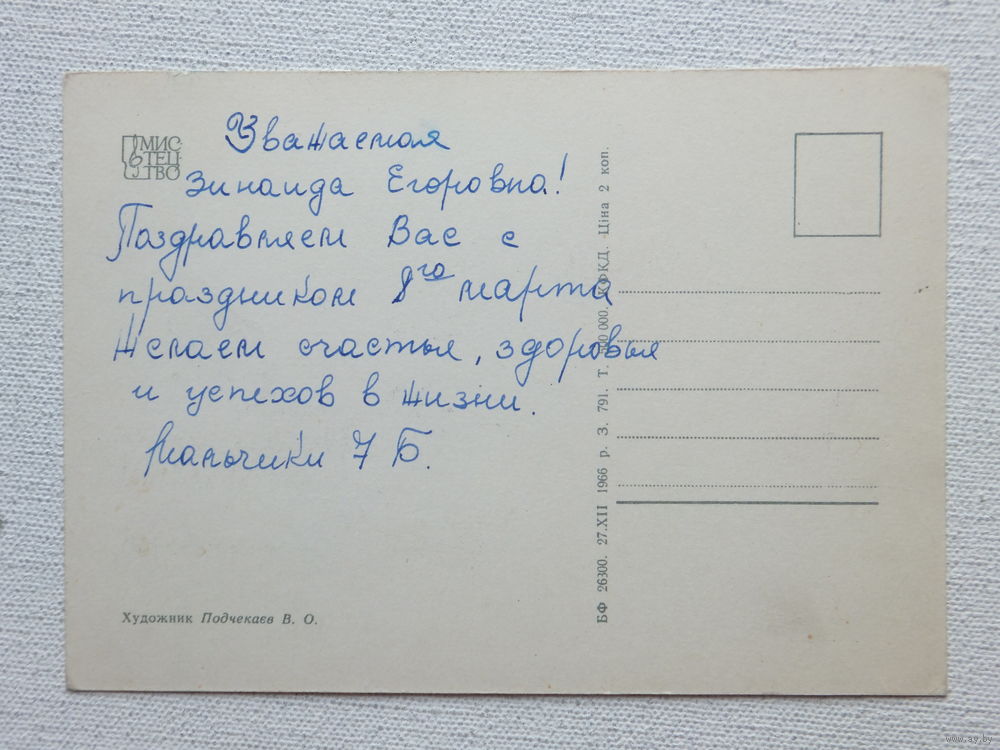 МИС-
ТЕЦ-
ТВО
Уважаемая
Зинаида Егоровна!
Поздравляем Вас с
праздником 8го марта
Желаем счастья, здоровья
и успехов в жизни.
Мальчики 7 Б.
Художник Подчекаєв В. О.
БФ 26300. 27.XII 1966 р. З. 791. Т. 000. КФКД. Ціна 2 коп.
www.ay.by